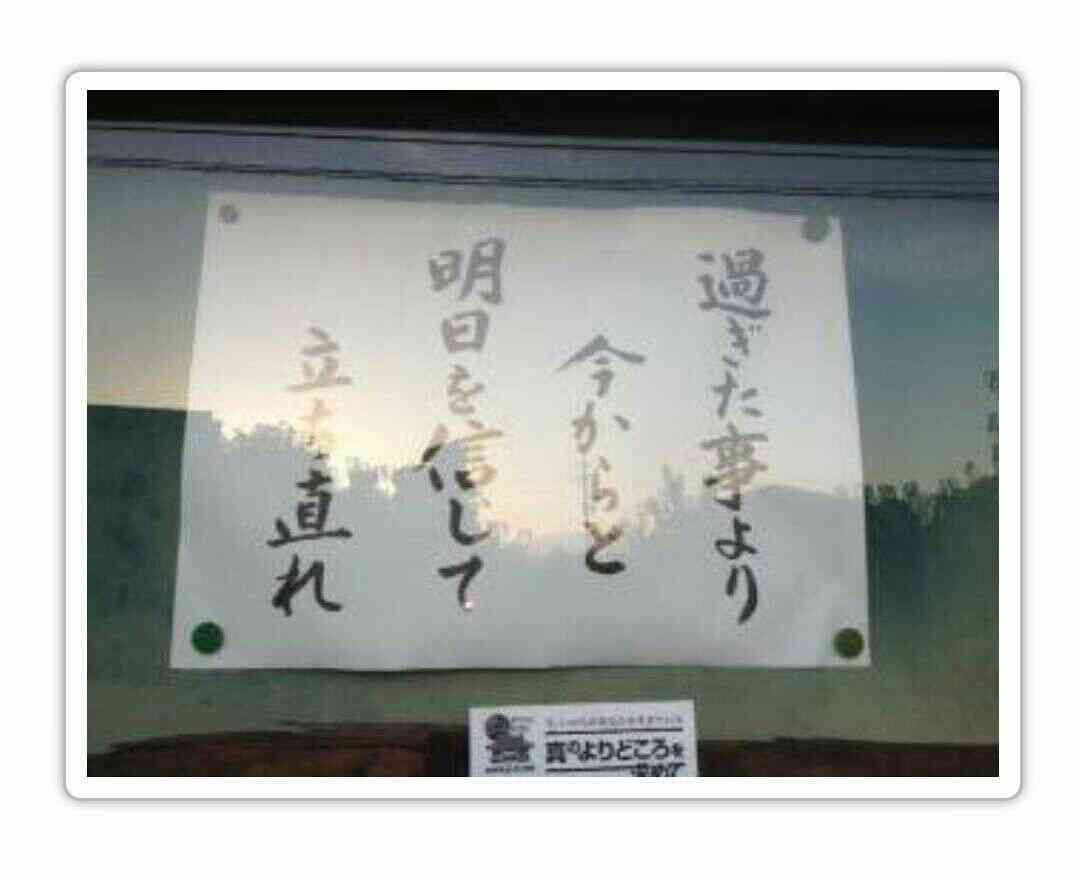 過ぎた事より
今からと
明日を信じて
立ち直れ
真のよりどころを
求めて